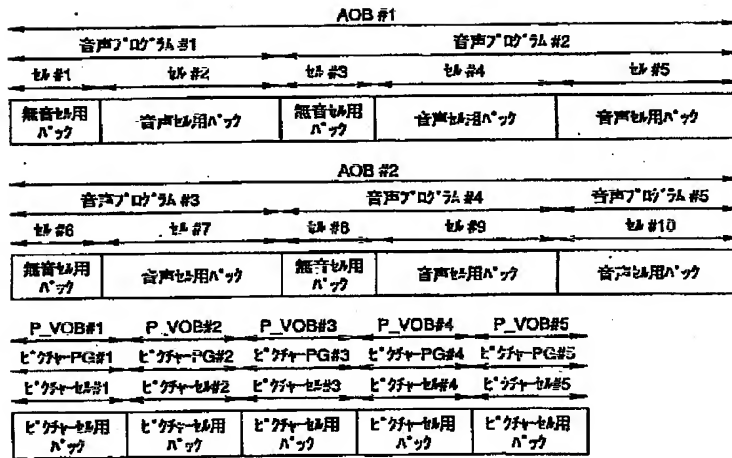 AOB #1
音声プログラム #1 音声プログラム #2
セル #1 セル #2 セル #3 セル #4 セル #5
無音セル用 パック 音声セル用パック 無音セル用 パック 音声セル用パック 音声セル用パック
AOB #2
音声プログラム #3 音声プログラム #4 音声プログラム #5
セル #6 セル #7 セル #8 セル #9 セル #10
無音セル用 パック 音声セル用パック 無音セル用 パック 音声セル用パック 音声セル用パック
P_VOB#1 P_VOB#2 P_VOB#3 P_VOB#4 P_VOB#5
ピクチャーPG#1 ピクチャーPG#2 ピクチャーPG#3 ピクチャーPG#4 ピクチャーPG#5
ピクチャーセル#1 ピクチャーセル#2 ピクチャーセル#3 ピクチャーセル#4 ピクチャーセル#5
ピクチャーセル用 パック ピクチャーセル用 パック ピクチャーセル用 パック ピクチャーセル用 パック ピクチャーセル用 パック